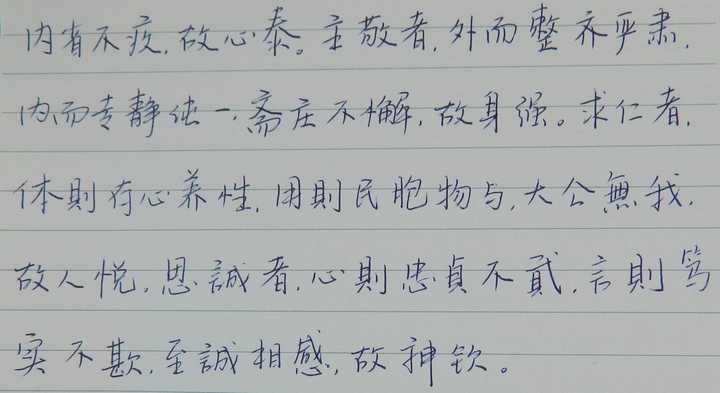 内省不疚,故心泰。主敬者,外而整齐严肃,
内而专静纯一,斋庄不懈,故身强。求仁者,
体則存心养性,用則民胞物与,大公無我,
故人悦,思誠者,心則忠貞不貳,言則笃
实不欺,至誠相感,故神钦。